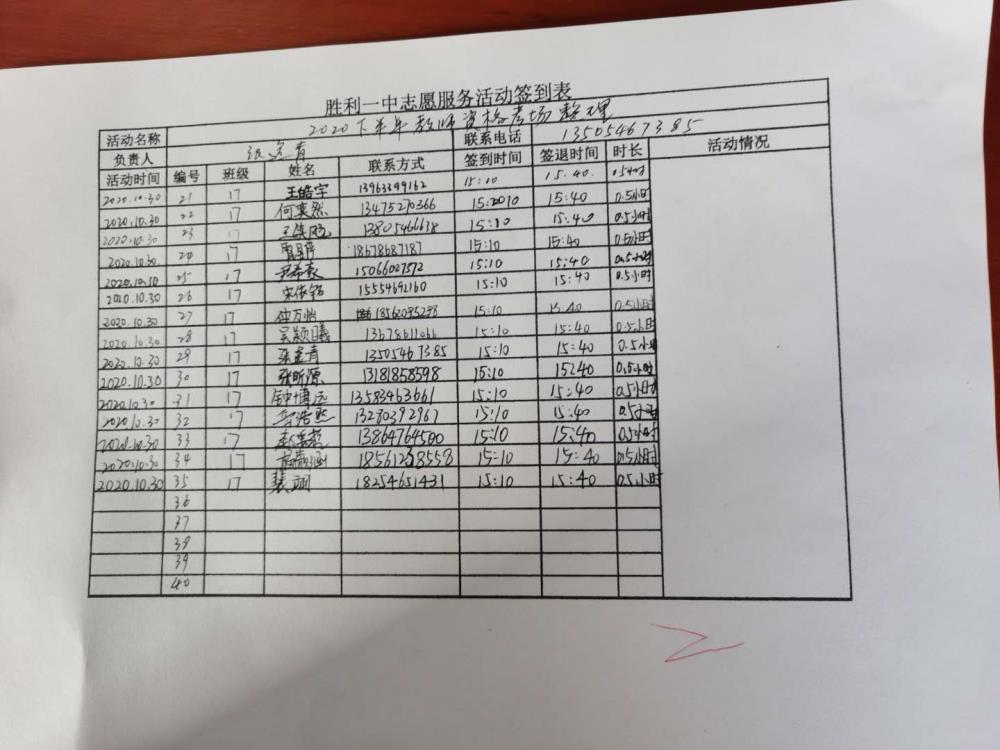 胜利一中志愿服务活动签到表
活动名称 2020下半年教师资格考场整理
负责人 联系电话 13505467385
活动时间 编号 班级 姓名 联系方式 签到时间 签退时间 时长 活动情况
2020.10.30 21 17 王皓宇 13963399162 15:10 15:40. 0.5小时
2020.10.30 22 17 何奕然 13475270366 15:2010 15:40 0.5小时
2020.10.30 23 17 13805466638 15:10 15:40 0.5小时
2020.10.30. 24 17 18678687187 15:10 15:40 0.5小时
2020.10.10 25 17 尹希表 15066027572 15:10 15:40 0.5小时
2020.10.30 26 17 宋依铭 15554692160 15:10 15:40 0.5小时
2020.10.30 27 17 仲万怡 18562095298 15:10 15:40 0.5小时
2020.10.30 28 17 吴颖曦 13678611066 15:10 15:40 0.5小时
2020.10.30 29 17 13505467385 15:10 15:40 0.5小时
2020.10.30 30 17 张昕源 13181858598 15:10 15:40 0.5小时
2020.10.30 31 17 钟博远 13583463661 15:10 15:40 0.5小时
2020.10.30 32 17 13270392967 15:10 15:40 0.5小时
2020.10.30 33 17 13864764500 15:10 15:40 0.5小时
2020.10.30 34 17 18561238558 15:10 15:40 0.5小时
2020.10.30 35 17 裴 18254651431 15:10 15:40 0.5小时
36
37
38
39
40